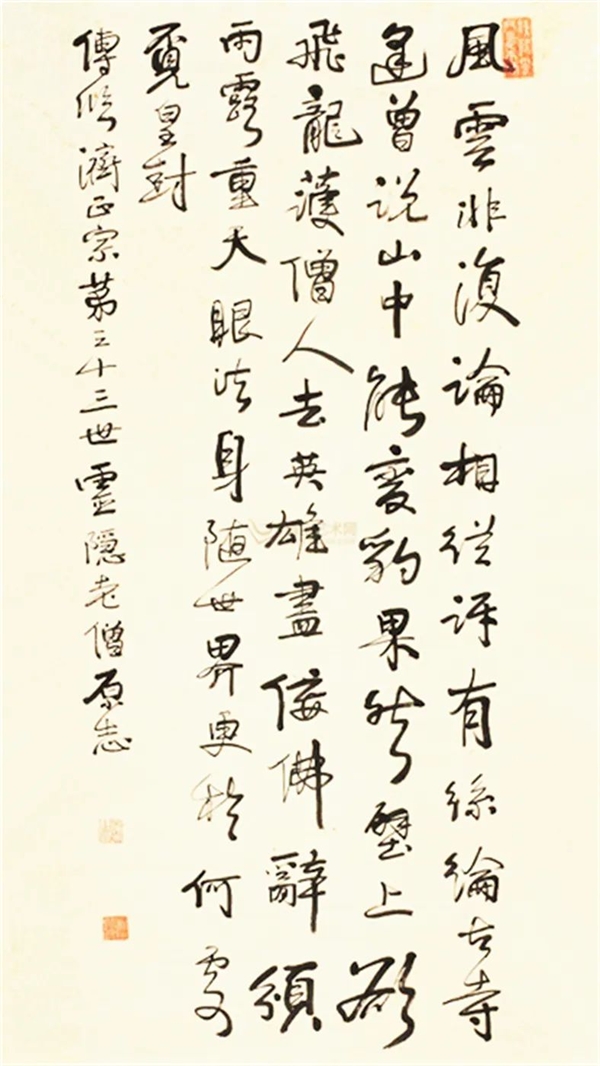 風雲非復論相從訝有絲綸古寺
逢曾說山中能變豹果然壁上欲
飛龍護僧人去英雄盡佞佛辭頒
雨露重天眼法身随世界更於何處
覓皇封
傳臨濟正宗第三十三世靈隱老僧原志